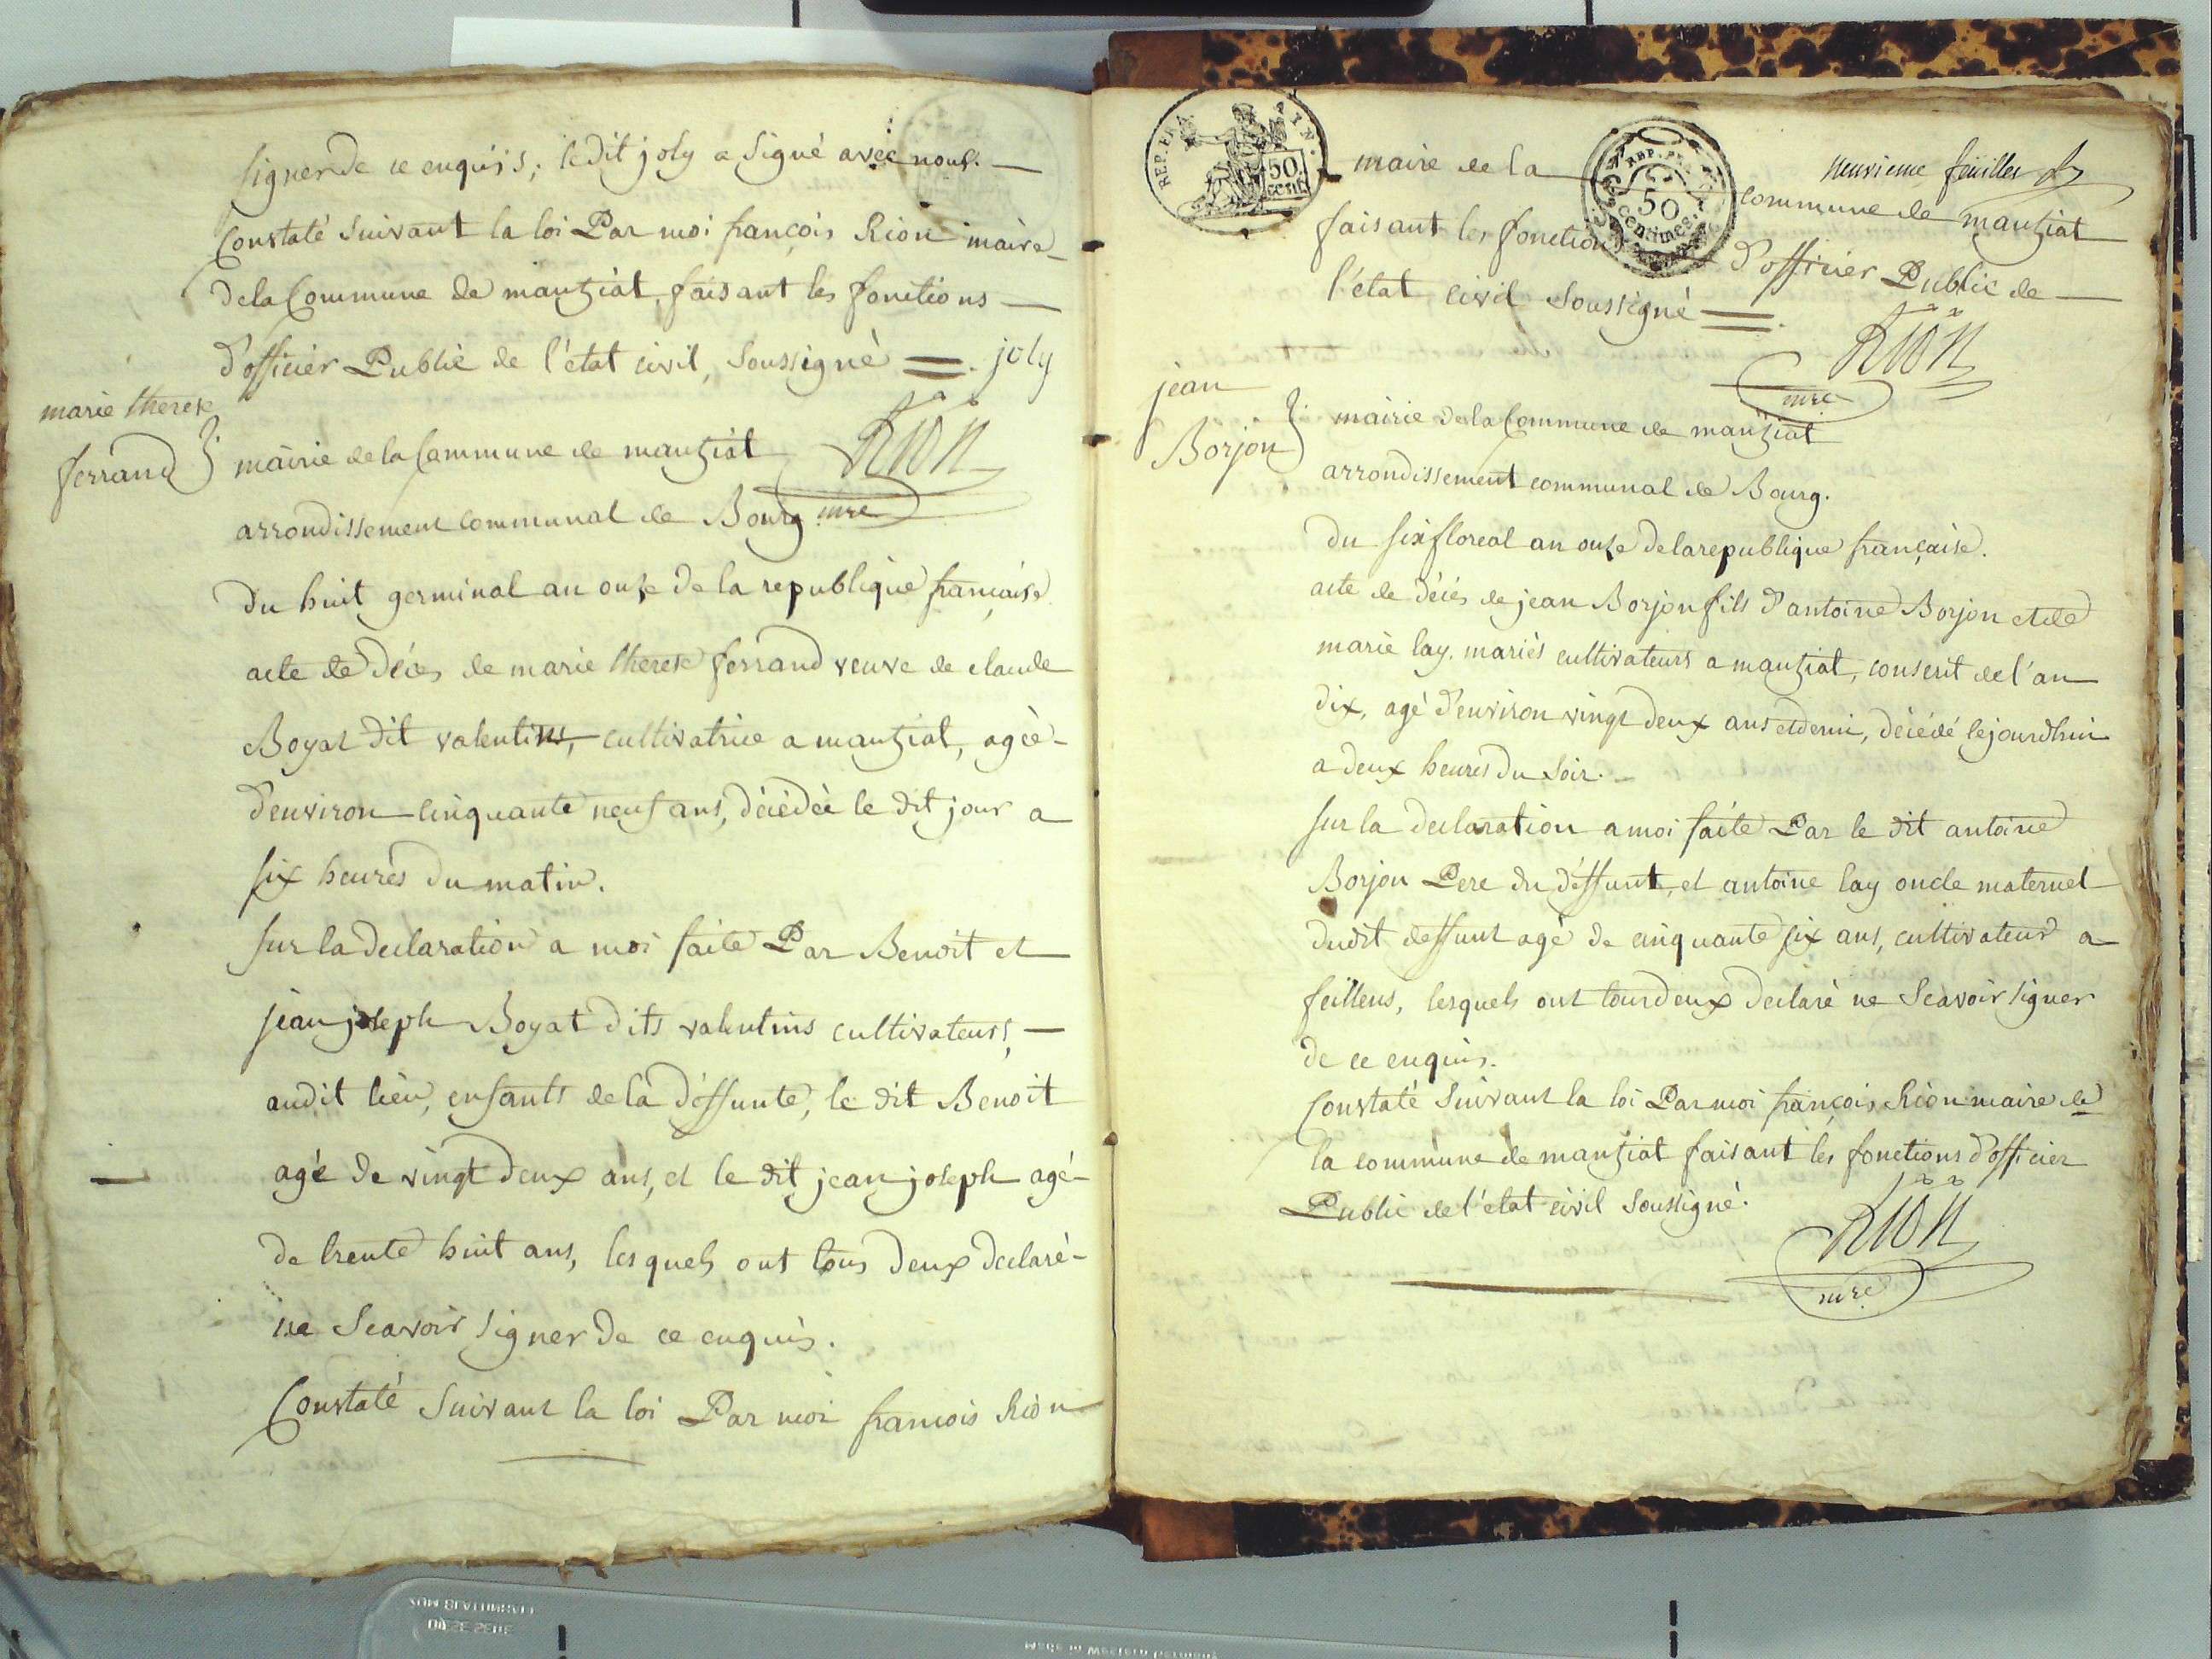 signer de ce enquis, ledit joly a signé avec nous.
Constaté suivant la loi Par moi françois Rion maire
de la Commune de mantziat, faisant les fonctions
d'officier Public de l'état civil, soussigné =. joly
RION
mre
marie therese
ferrand
mairie de la Commune de mantziat
arrondissement communal de Bourg
Du huit germinal an onze de la republique francaise
acte de déces de marie therese ferrand veuve de claude
Boyat dit valentin, cultivatrice a mantziat, agée
d'environ cinquante neuf ans, décédée le dit jour a
six heures du matin.
sur la declaration a moi faite Par Benoit et
jean joseph Boyat dits valentins cultivateurs,
audit lieu, enfants de la déffunte, le dit Benoit
agé de vingt deux ans, et le dit jean joseph agé
de trente huit ans, lesquels ont tous deux declaré
ne Scavoir signer de ce enquis.
Constaté suivant la loi Par moi francois Rion
REP. FRA. 50 cent.
REP. FRA. 50 centimes
neuvieme feuillet
maire de la commune de mantziat
faisant les fonctions d'officier Public de
l'état civil soussigné =.
RION
mre
jean
Borjon
mairie de la Commune de mantziat
arrondissement communal de Bourg.
Du six floreal an onze de la republique française.
acte de déces de jean Borjon fils d'antoine Borjon et de
marie lay. mariés cultivateurs a mantziat, conscrit de l'an
dix, agé d'environ vingt deux ans et demi, décédé cejourdhui
a deux heures du soir.
sur la declaration a moi faite Par le dit antoine
Borjon Pere du déffunt, et antoine lay oncle maternel
dudit deffunt agé de cinquante six ans, cultivateur a
feillens, lesquels ont tous deux declaré ne Scavoir signer
de ce enquis.
Constaté suivant la loi Par moi françois Rion maire de
la commune de mantziat faisant les fonctions d'officier
Public de l'état civil soussigné.
RION
mre
DIESE SEITE
Made in Western Germany